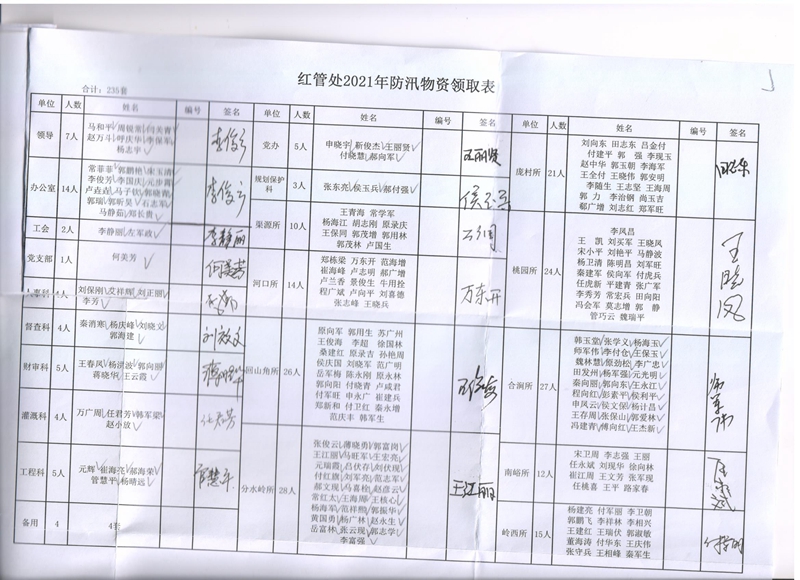 红管处2021年防汛物资领取表
合计：235套
单位 人数 姓名 编号 签名 单位 人数 姓名 编号 签名 单位 人数 姓名 编号 签名
领导 7人
马和平 周银常 闫关青
赵万斗 呼庆华 李保军
杨志宇
李俊
办公室 14人
常菲菲 郭鹏艳 宋玉清
李俊芳 李国庆 元步菁
卢垚垚 马子钦 郭晓青
郭瑞 郭昕昊 石志军
马静茹 郑长贵
李俊
工会 2人
李静丽 左军政
李静丽
党支部 1人
何美芳
何美芳
人事科 4人
刘保刚 友祥辉 刘正丽
李芳
督查科 4人
秦消寒 杨庆峰 刘晓文
郭海建
财审科 5人
王春风 杨洪波 郭向丽
蒋晓华 王云霞
灌溉科 4人
万广周 任君芳 韩军梁
赵小放
任君芳
工程科 5人
元辉 崔海亮 郝海荣
管慧平 杨晴远
管慧平
备用 4 4套
党办 5人
申晓宇 新俊杰 王丽贤
付晓慧 郝向军
王丽贤
规划保护科 3人
张东亮 侯玉兵 郝付强
渠源所 10人
王青海 常学军
杨海江 胡志刚 原录庆
王保同 郭茂增 郭用林
郭茂林 卢国生
河口所 14人
郑栋梁 万东开 范海增
崔海峰 卢志明 郝广增
卢兰香 景俊生 牛用拴
程广斌 卢向平 刘喜德
张志峰 王晓兵
万东开
回山角所 26人
原向军 郭用生 苏广州
王俊海 李超 徐国林
桑建红 原录吉 孙艳周
侯庆国 刘晓军 范广明
岳军梅 陈永刚 原林军
郭向阳 付晓青 卢咸君
付军旺 申永广 崔建兵
郑新和 付卫红 秦永增
范庆丰 韩军生
分水岭所 28人
张俊云 薄晓勇 郭富岗
王江丽 马旺军 王宏亮
元瑞霞 吕伏存 刘伏现
付红旗 刘军亮 范志军
郝文现 马喜栓 赵彦云
常红太 王海周 王核心
杨海军 范祥熙 郭振华
黄国勇 杨广林 赵永生
岳富林 张云现 郭志学
李富强
王江丽
庞村所 21人
刘向东 田志东 吕金付
付建平 郭强 李现玉
赵中华 郭玉朝 李海军
王全付 王晓伟 郭安明
李随生 王志坚 王海周
郭力 李治钢 尚玉吉
郗广增 刘志红 郑军旺
田志东
桃园所 24人
李凤昌
王凯 刘买军 王晓凤
宋小平 刘艳平 马静波
杨卫清 陈明昌 刘军旺
秦建军 侯向军 付虎兵
任虎新 平建青 张广军
李秀芳 常宏兵 田向阳
冯会军 莫志增 郭静
管巧云 魏瑞平
王晓凤
合涧所 27人
韩玉堂 张学义 杨海玉
师军伟 李付仓 王保玉
魏林慧 原劲松 李广忠
田发州 杨军强 元光明
秦向丽 郭向东 王永江
程向红 彭素平 侯利平
申风云 侯文保 杨计昌
王存周 张保山 郭爱林
冯建青 傅向红 王杰新
师军伟
南峪所 12人
宋卫周 李志强 王丽
任永斌 刘现华 徐向林
崔江周 王文芳 张军现
任桃喜 王平 路家春
岭西所 15人
杨建亮 付军丽 李卫朝
郭鹏飞 李祥林 李相兴
王建红 王瑞伏 郭淑敏
董海涛 付华东 王庆伟
张守兵 王相峰 秦军生